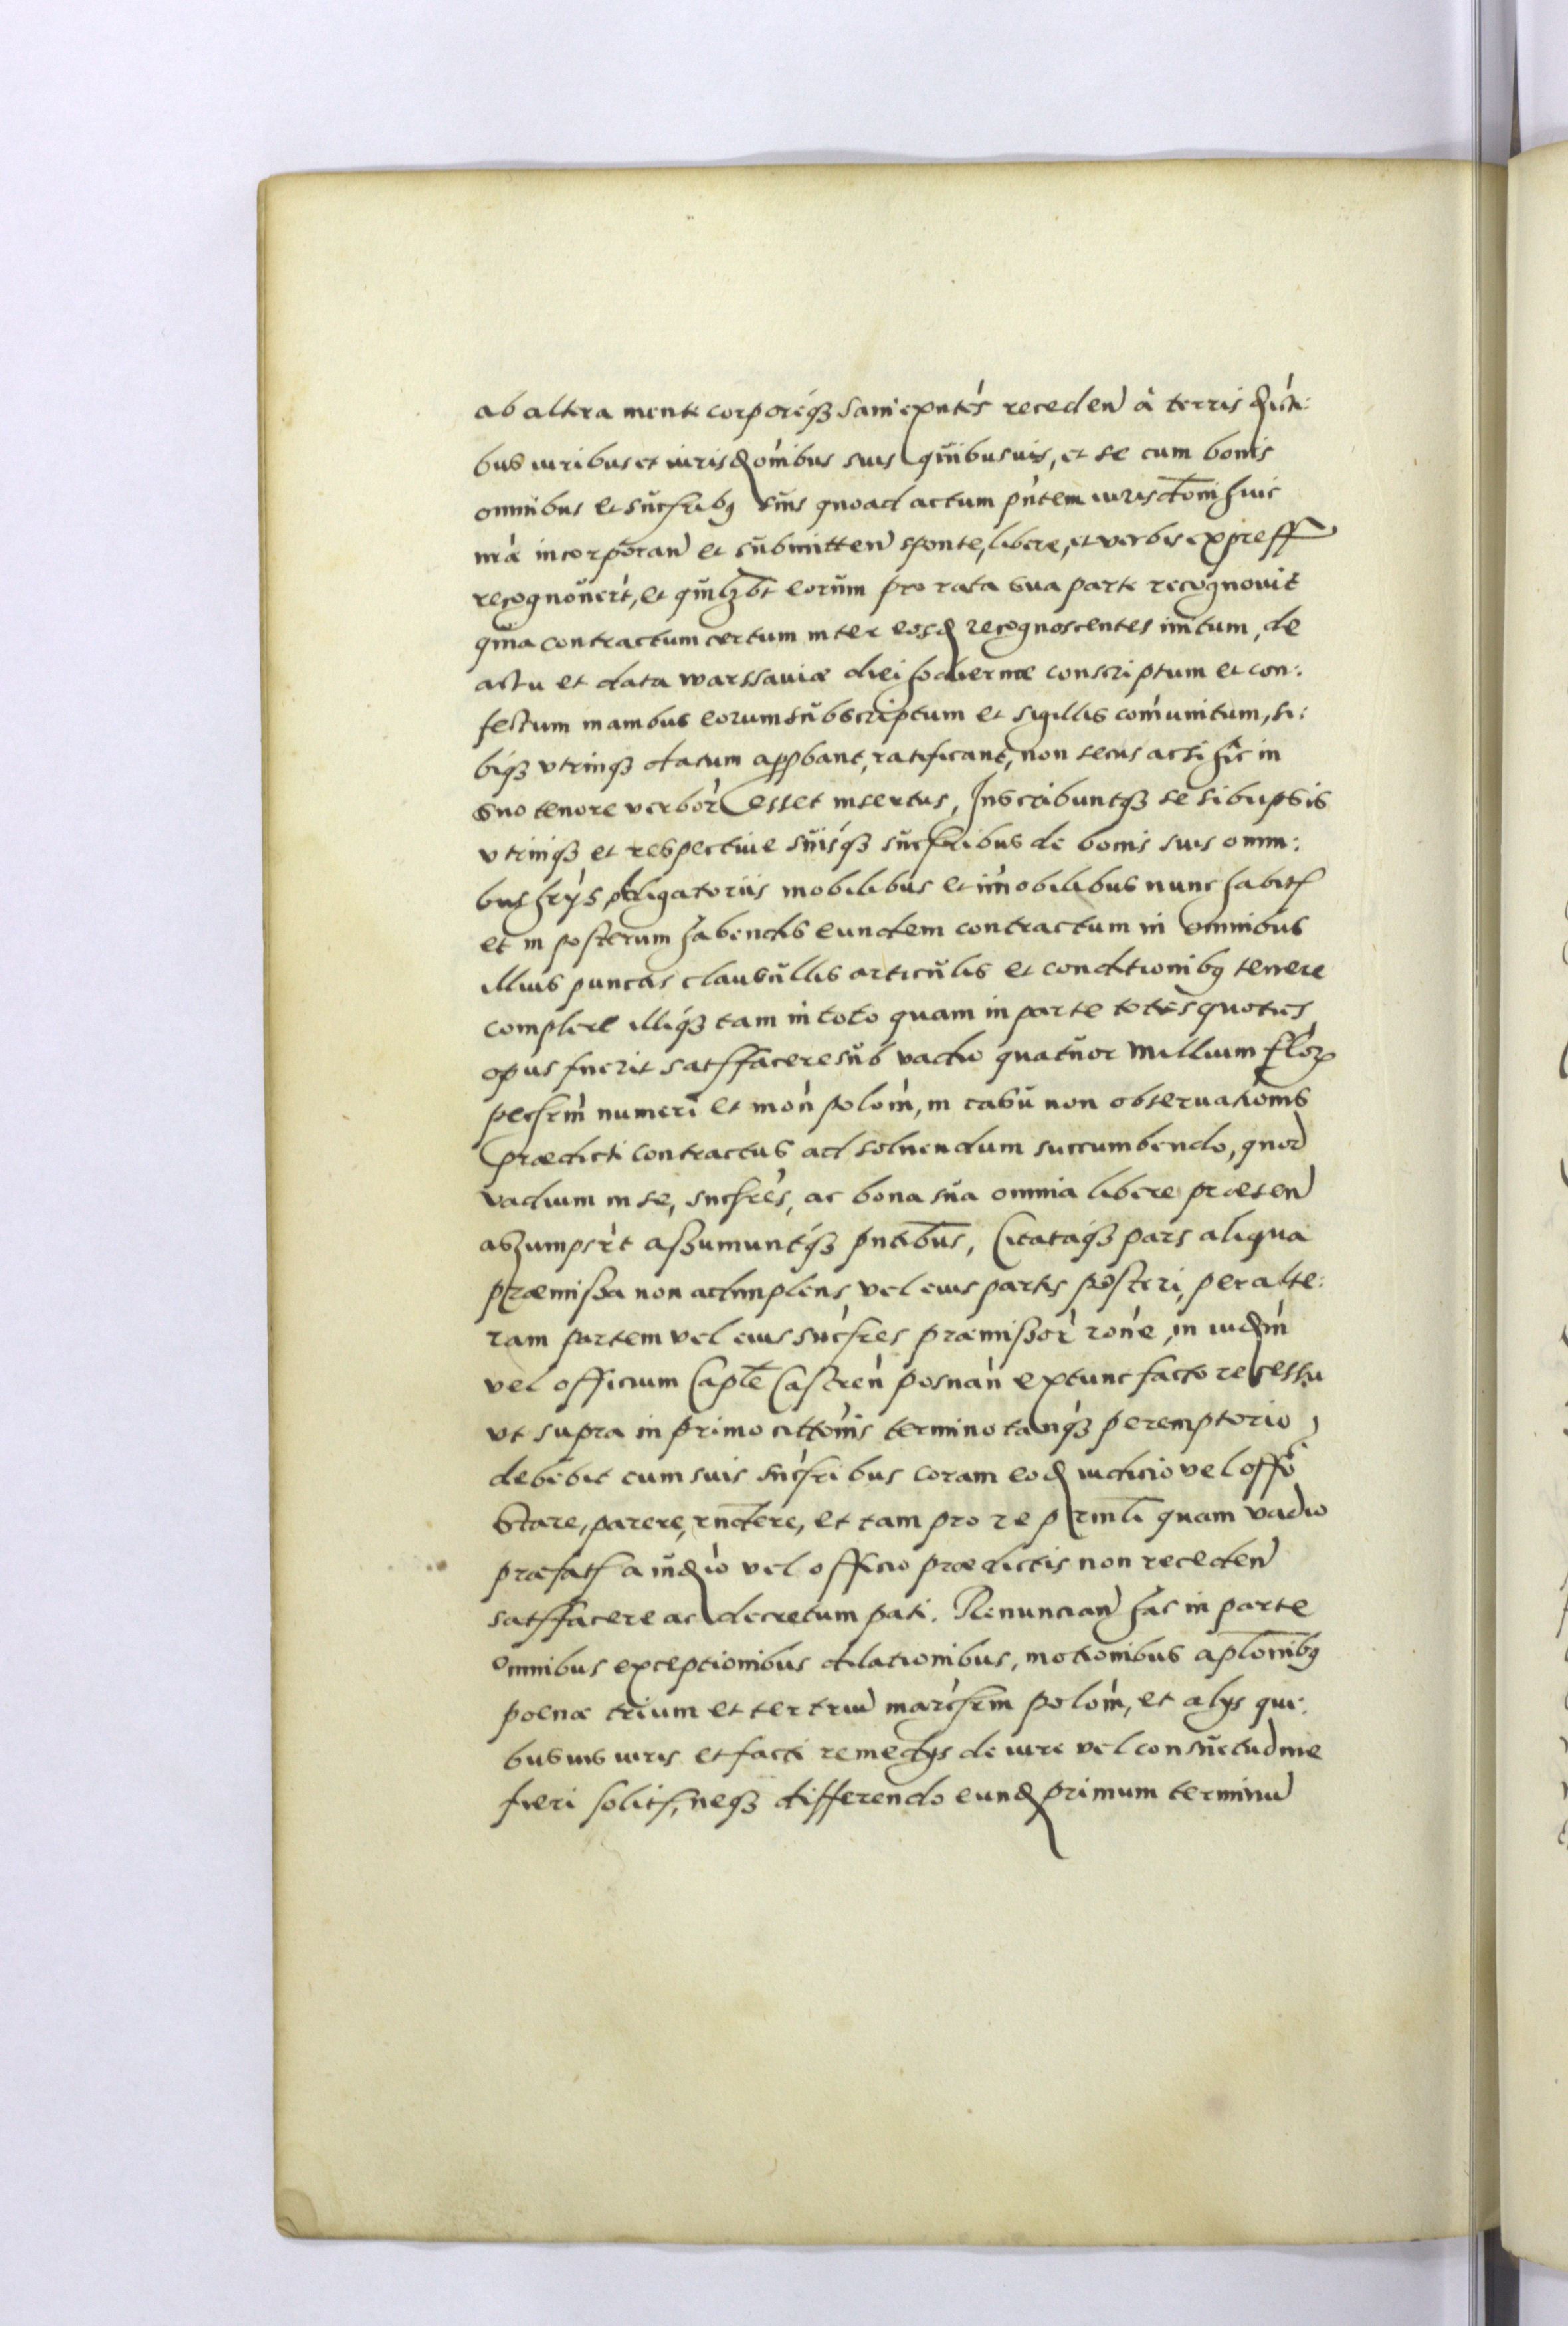 ab altera mente corporéqꝫ sani exnt̃es receden̄ à terris distri:
bus iuribus et iurisdōnibus suis quibusuis, et se cum bonis
omnibus et sucẽribꝫ suis quoad actum pñtem iurisdctōni huic
nrã incorporan̄ et submitten̄ sponte, libere, et verbis express
recognouerūt, et quilꝫbt eorum pro rata sua parte recognouit
quia contractum certum inter eosd recognoscentes initum, de
actu et data warssauiæ diei hodiernæ conscriptum et con:
fectum manibus eorum subscriptum et sigillis com̃unitum, si:
biqꝫ vtrinqꝫ datum approbant, ratificant, non secus ac si hic in
suo tenore verbor̃ esset insertus, Inscribuntqꝫ se sibi ipsis
vtrinqꝫ et respectiue suisqꝫ sucẽribus de bonis suis omni:
bus hrijs obligatoriis mobilibus et im̃obilibus nunc habit
et in posterum habendis eundem contractum in omnibus
illius punctis clausullis articulis et conditionibꝫ tenere
complere illiqꝫ tam in toto quam in parte toties quoties
opus fuerit satffacere sub vadio quatuor millium flor
pecẽrm̃ numeri et mon̄ polon̄, in casu non obseruationis
prædicti contractus ad soluendum succumbendo, quod
vadium in se, sucẽres, ac bona sua omnia libere præsen̄
assumpser̃t assumuntqꝫ pñtibus, Citataqꝫ pars aliqua
præmissa non adimplens, vel eius partis posteri, per alte:
ram partem vel eius sucẽres præmissor̃ rōne, in iudm̃
vel officium Caplẽ Castren̄ posnan̄ extunc facto recessu
vt supra in primo cittōnis termino tanqꝫ peremptorio,
debebit cum suis sucẽribus coram eod iudicio vel offō
Stare, parere, rñdere, et tam pro re prinli quam vadio
præfat a iudio vel officio prædictis non receden̄
satffacere ac decretum pati. Renuncian̄ hac in parte
omnibus exceptionibus dilationibus, motionibus aplōnibꝫ
poenæ trium et ter triū marcẽrm polon̄, et alijs qui:
busuis iuris et facti remedijs de iure vel consuetudine
fieri solit, neqꝫ differendo eund primum terminū